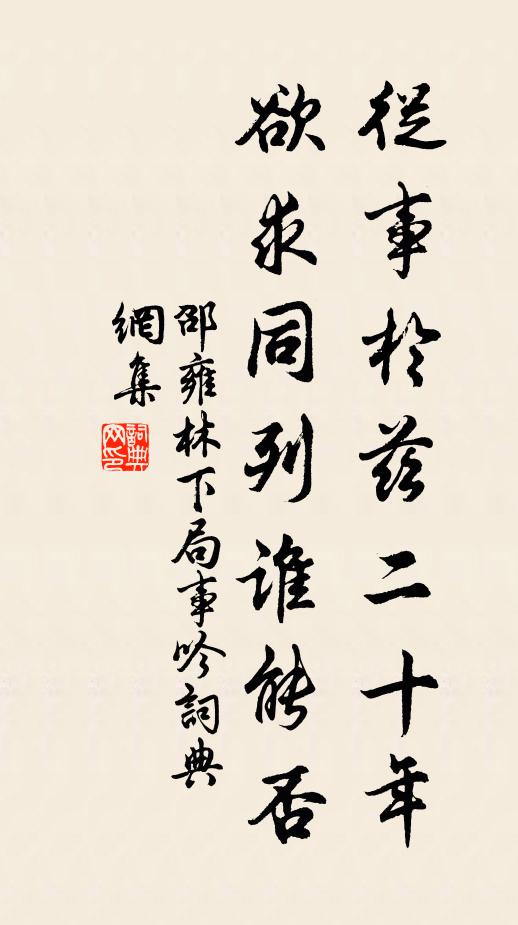 從事於茲二十年
欲求同列誰能否
邵雍林下局事吟詞典
網集
詞典
网印